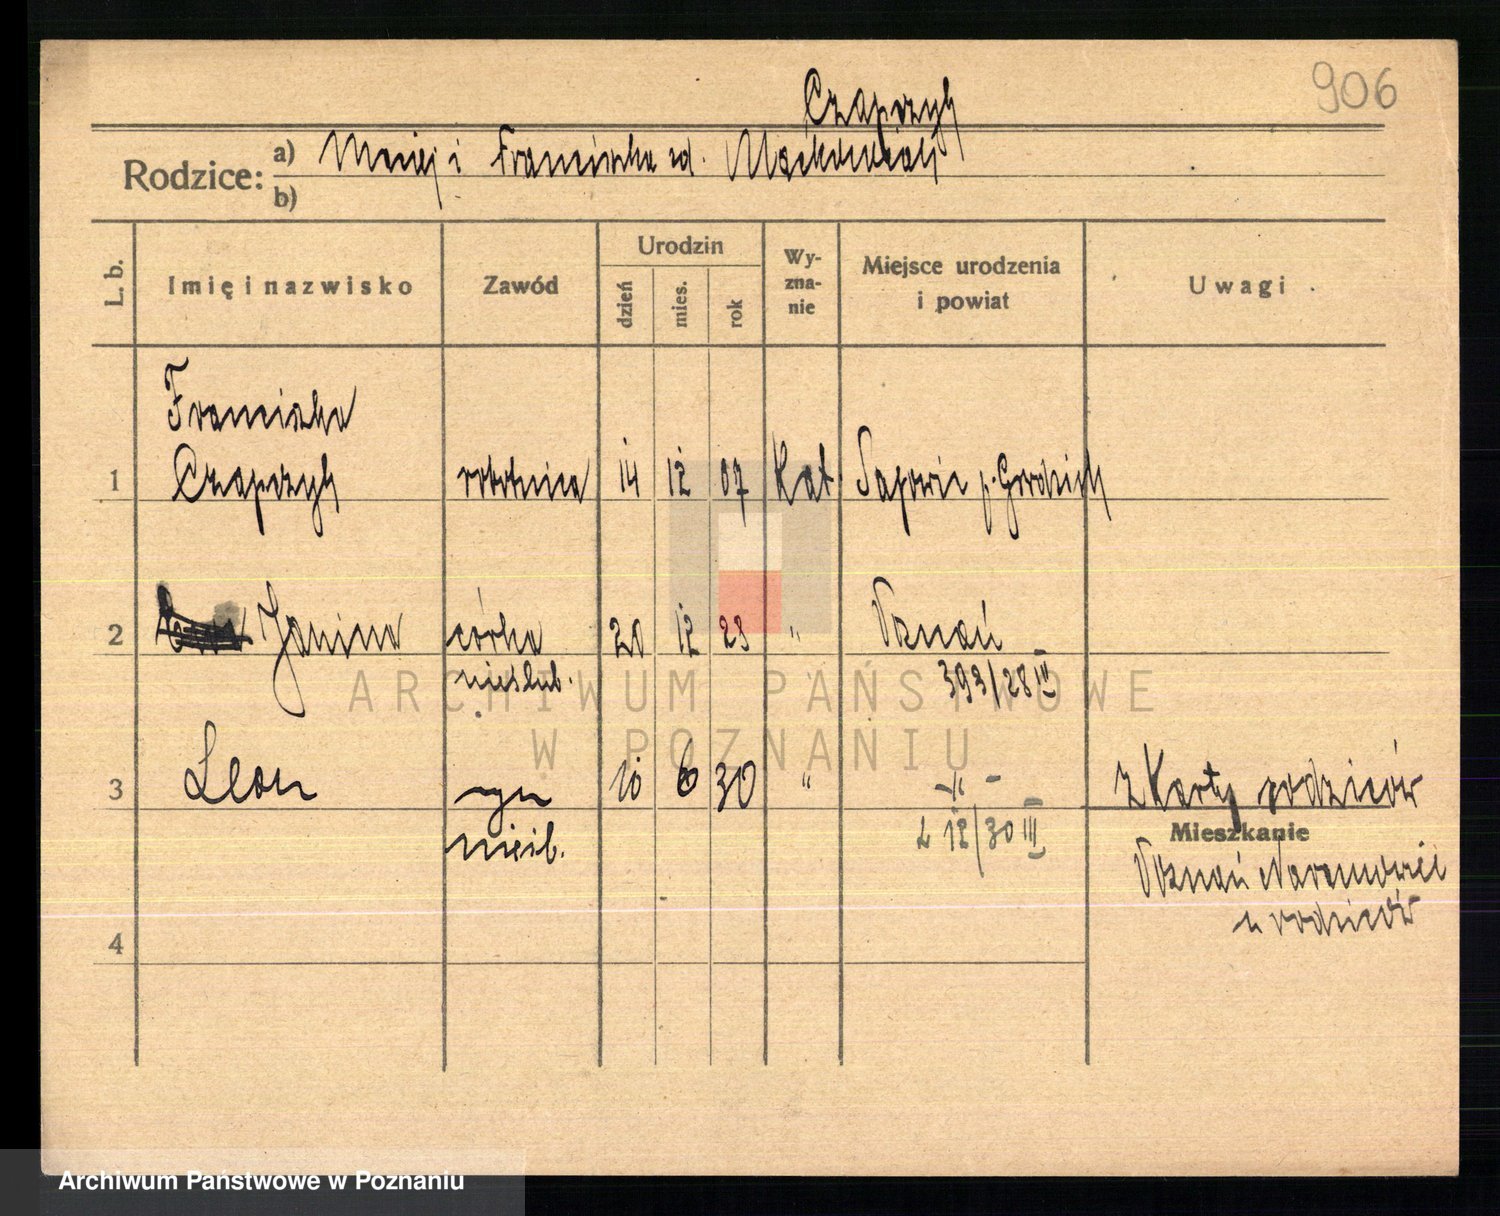 906
Czaprzyk
Rodzice: a) Maciej i Franciszka zd. Maćkowiak
b)
L. b. Imię i nazwisko Zawód Urodzin Wyznanie Miejsce urodzenia i powiat Uwagi
dzień mies. rok
Franciszka
1 Czaprzyk robotnica 14 12 07 Kat. p. Grodzisk
2 Janina córka 20 12 Poznań
nieślub. 393/28 III
3 Leon syn 10 6 30 " -"- z Karty rodziców
nieśl. 12/30 III Mieszkanie
Poznań Naramowice
u rodziców
4
ARCHIWUM PAŃSTWOWE
W POZNANIU
Archiwum Państwowe w Poznaniu